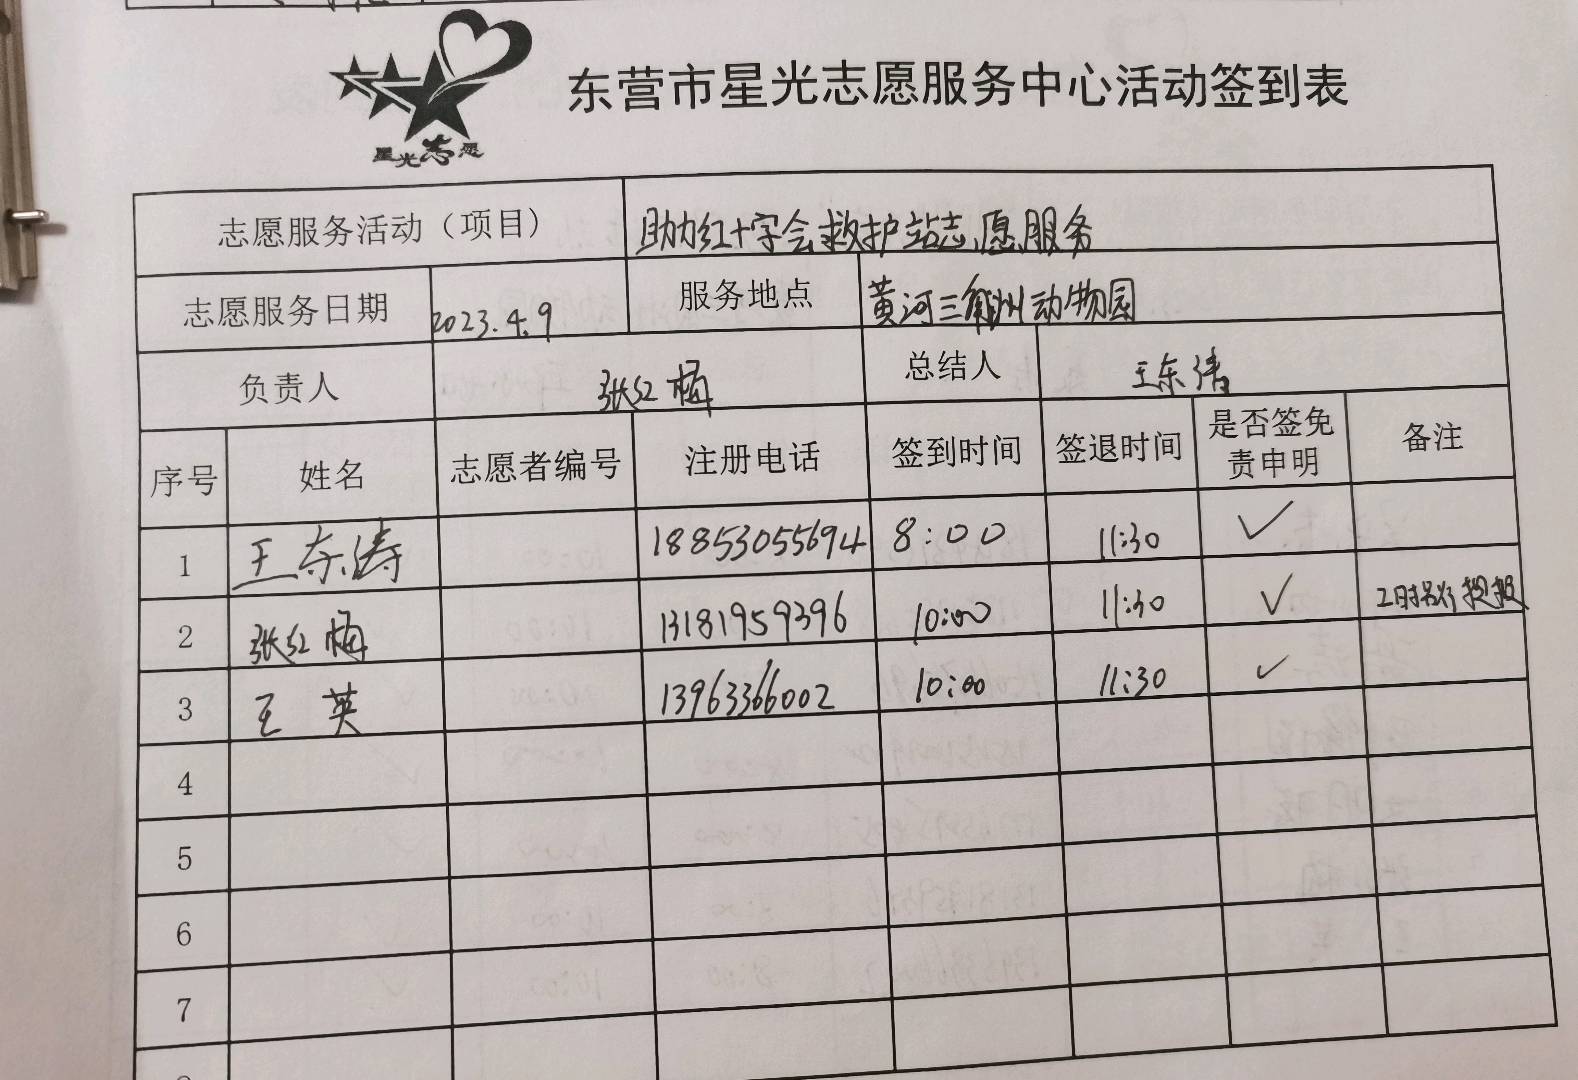 星光志愿
东营市星光志愿服务中心活动签到表
志愿服务活动（项目） 助力红十字会救护站志愿服务
志愿服务日期 2023.4.9 服务地点 黄河三角洲动物园
负责人 张红梅 总结人 王东涛
序号 姓名 志愿者编号 注册电话 签到时间 签退时间 是否签免责申明 备注
1 王东涛 18853055694 8:00 11:30 ✓
2 张红梅 13181959396 10:00 11:30 ✓ 工时
3 王英 13963366002 10:00 11:30 ✓
4
5
6
7